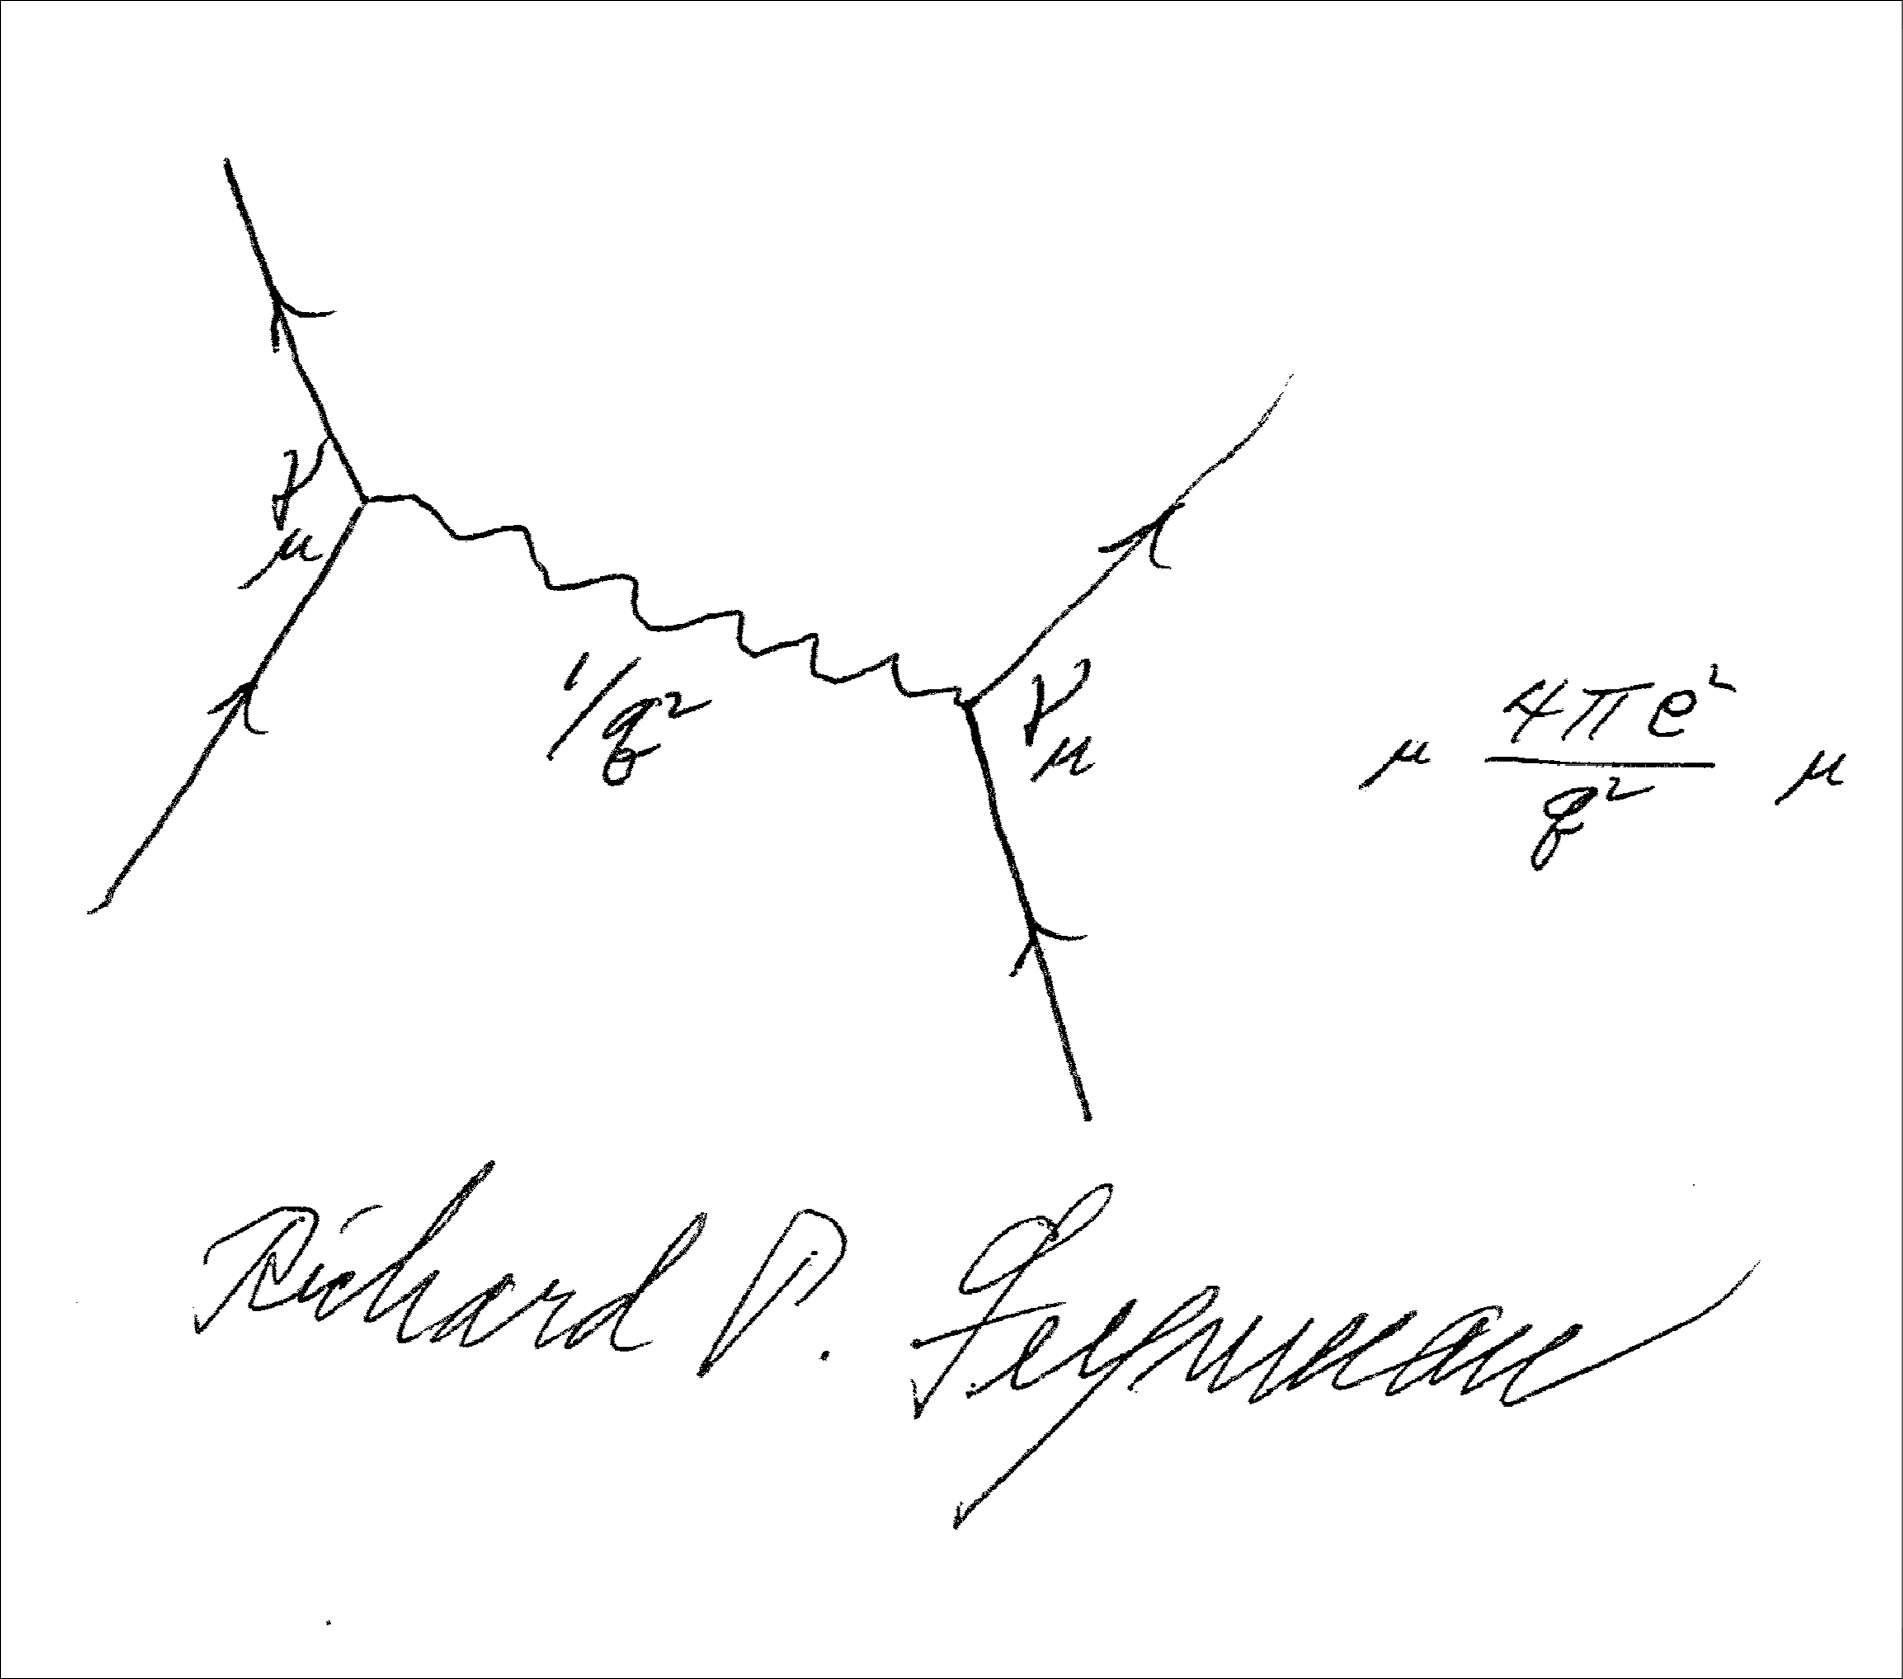 γμ
1/q²
γμ
μ 4πe²/q² μ
Richard P. Feynman